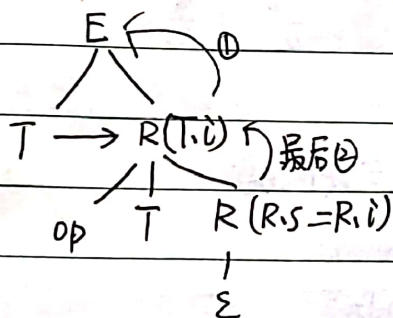 E ①
T → R(T.i) 最后②
op T R(R.s=R.i)
ε